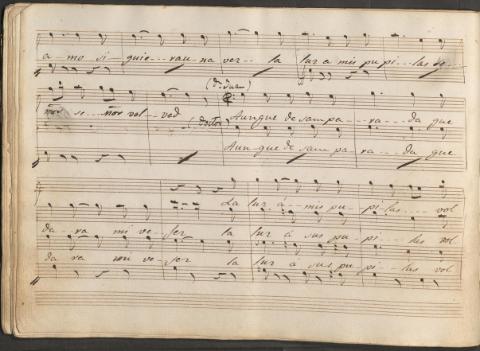 a - mo si - guie - - ra u - na ver - - la luz a mis pu pi - las se -
(D. Juan)
ñor se - - ñor vol - - ved Aunque de sam pa - - - ra - - da que
Doctor
Aun - que de sam pa - ra - - da que
La luz á - mis pu - pi - las - - vol
da - ra mi ve - jez la luz á sus pu - pi - - las vol
da ra mi ve - jez la luz á sus pu - pi - las vol